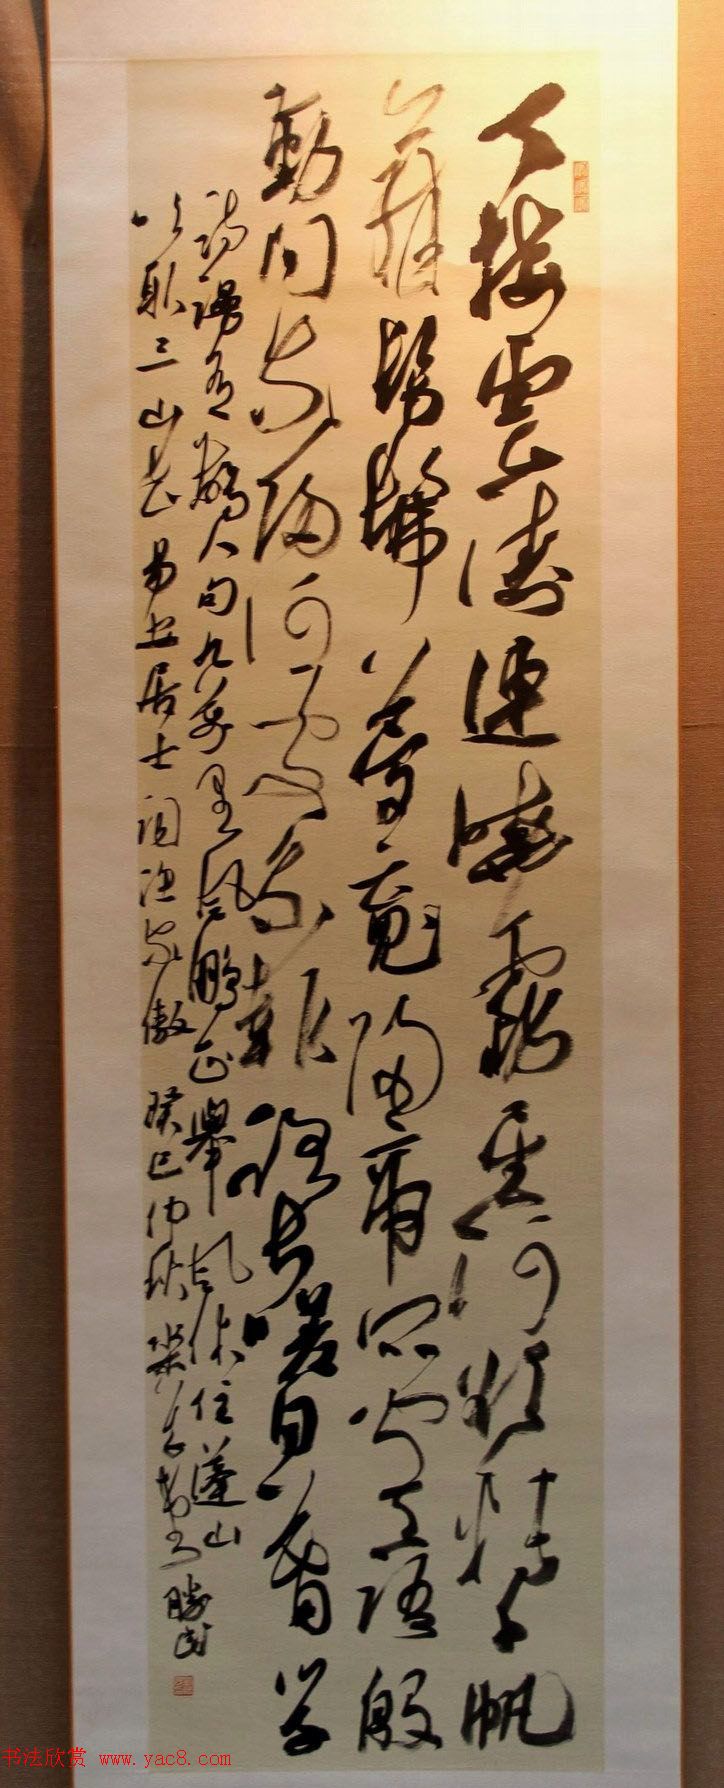 天接雲濤連曉霧星河欲轉千帆
舞髣髴夢魂歸帝所聞天語殷
勤問我歸何處我報路長嗟日暮學
詩謾有驚人句九萬里風鵬正舉風休住蓬舟
吹取三山去 易安居士詞漁家傲 癸巳仲秋
书法欣赏 www.yac8.com